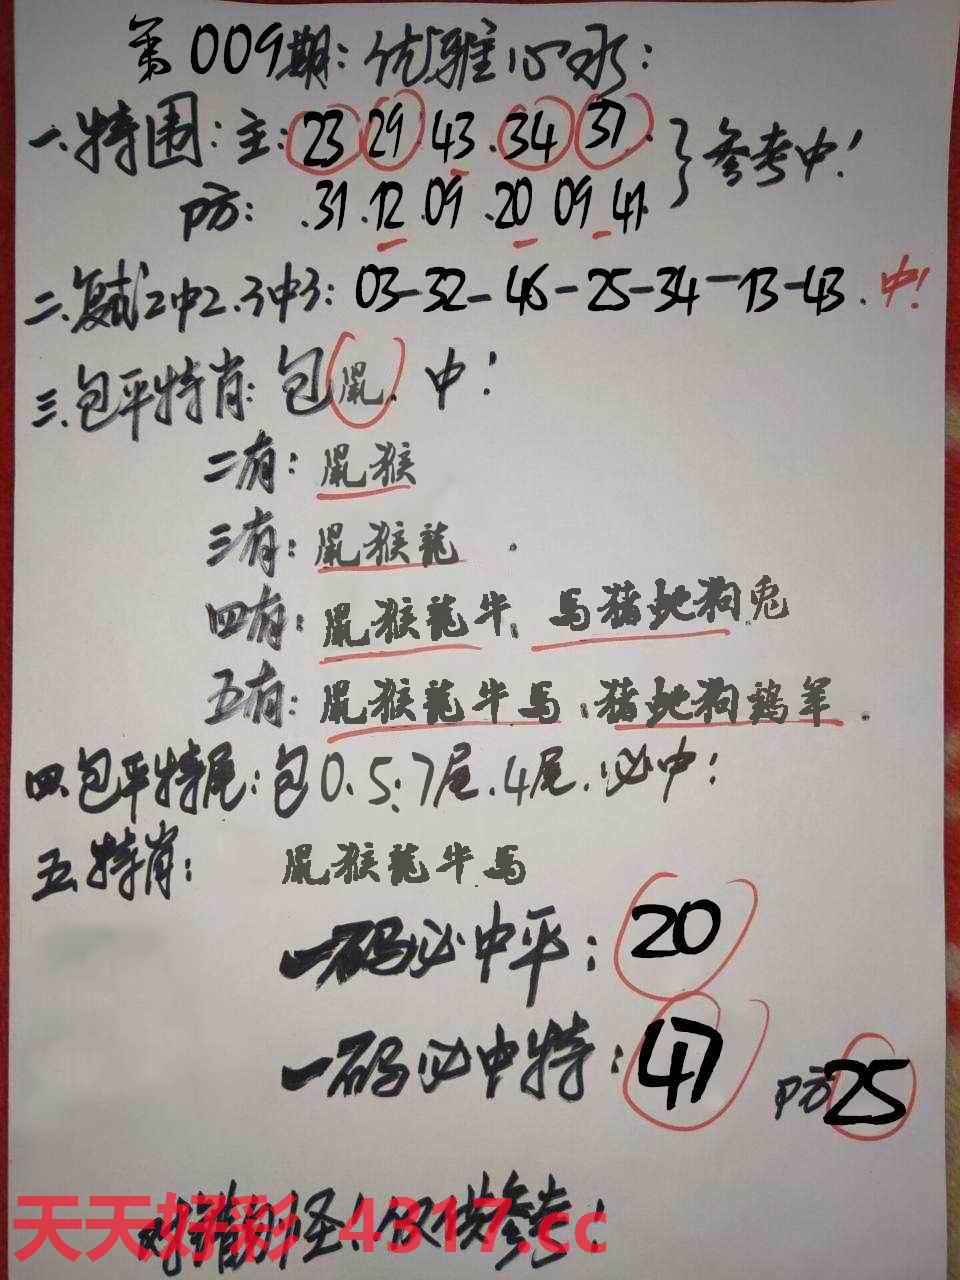 第009期：优雅心水：
一.特围：主：23 29 43.34 37. }参考中！
防：.31.12.09.20 09 41.
二.复式2中2.3中3：03-32-46-25-34-13-43.中!
三.包平特肖：包鼠.中！
二有：鼠猴
三有：鼠猴龍.
四有：鼠猴龍牛、馬猪蛇狗兔
五有：鼠猴龍牛馬；猪蛇狗鷄羊.
四.包平特尾：包0.5;7尾.4尾.必中；
五.特肖：鼠猴龍牛馬
一码必中平：20
一码必中特：47 防25
对错勿怪！仅供参考！
天天好彩 4317.cc